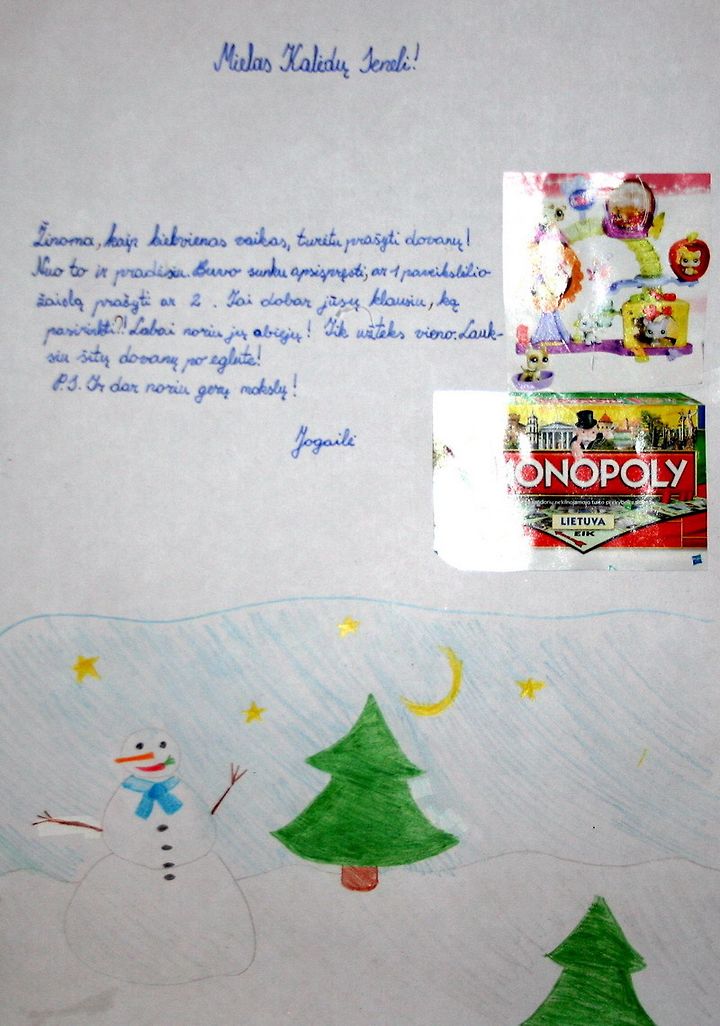 Mielas Kalėdų Seneli!
Žinoma, kaip kiekvienas vaikas, turėtu prašyti dovanų!
Nuo to ir pradėsiu. Buvo sunku apsispręsti, ar 1 paveikslėlio
žaislą prašyti ar 2. Tai dabar jūsų klausiu, ką
pasirinkti?! Labai noriu jų abiejų! Tik užteks vieno. Lauk-
siu šitų dovanų po eglute!
P.S. Ir dar noriu gerų mokslų!
Jogailė
MONOPOLY
LIETUVA
EIK